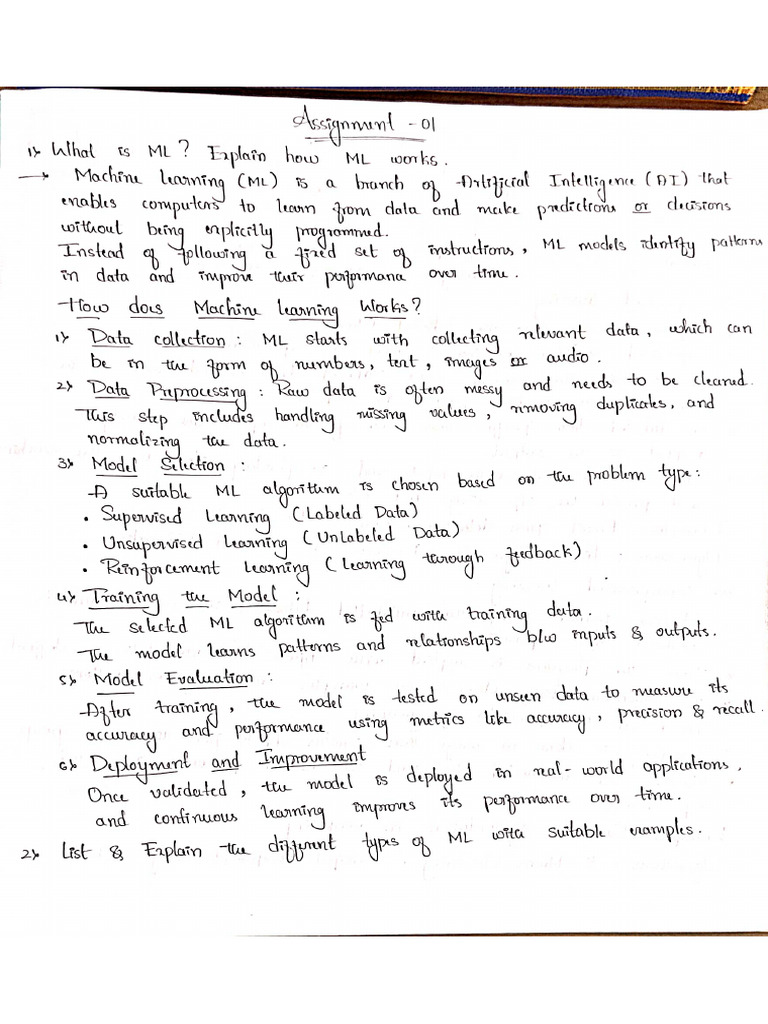 Assignment - 01
1) What is ML? Explain how ML works.
→ Machine learning (ML) is a branch of Artificial Intelligence (AI) that
enables computers to learn from data and make predictions or decisions
without being explicitly programmed.
Instead of following a fixed set of instructions, ML models identify patterns
in data and improve their performance over time.
How does Machine learning Works?
1) Data collection : ML starts with collecting relevant data, which can
be in the form of numbers, text, images or audio.
2) Data Preprocessing : Raw data is often messy and needs to be cleaned.
This step includes handling missing values, removing duplicates, and
normalizing the data.
3) Model Selection :
A suitable ML algorithm is chosen based on the problem type:
• Supervised Learning (Labeled Data)
• Unsupervised Learning (UnLabeled Data)
• Reinforcement learning (learning through feedback)
4) Training the Model :
The selected ML algorithm is fed with training data.
The model learns patterns and relationships b/w inputs & outputs.
5) Model Evaluation :
After training, the model is tested on unseen data to measure its
accuracy and performance using metrics like accuracy, precision & recall.
6) Deployment and Improvement
Once validated, the model is deployed in real-world applications,
and continuous learning improves its performance over time.
2) List & Explain the different types of ML with suitable examples.